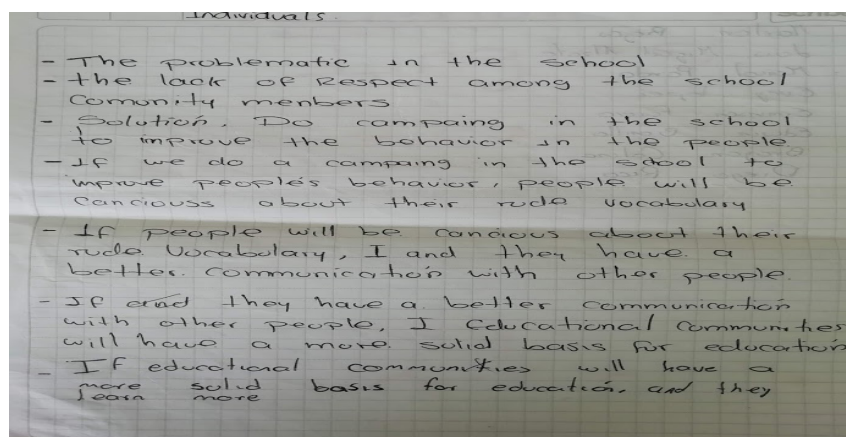 Individuals.
- The problematic in the school
- the lack of Respect among the school
Comunity menbers
- Solution. Do campaing in the school
to improve the behavior in the people
- If we do a campaing in the school to
improve people's behavior, people will be
canciouss about their rude vocabulary
- If people will be cancious about their
rude Vocabulary, I and they have a
better communication with other people.
- If and they have a better communication
with other people, I Educational communities
will have a more solid basis for education
- If educational communities will have a
more solid basis for education, and they
learn more